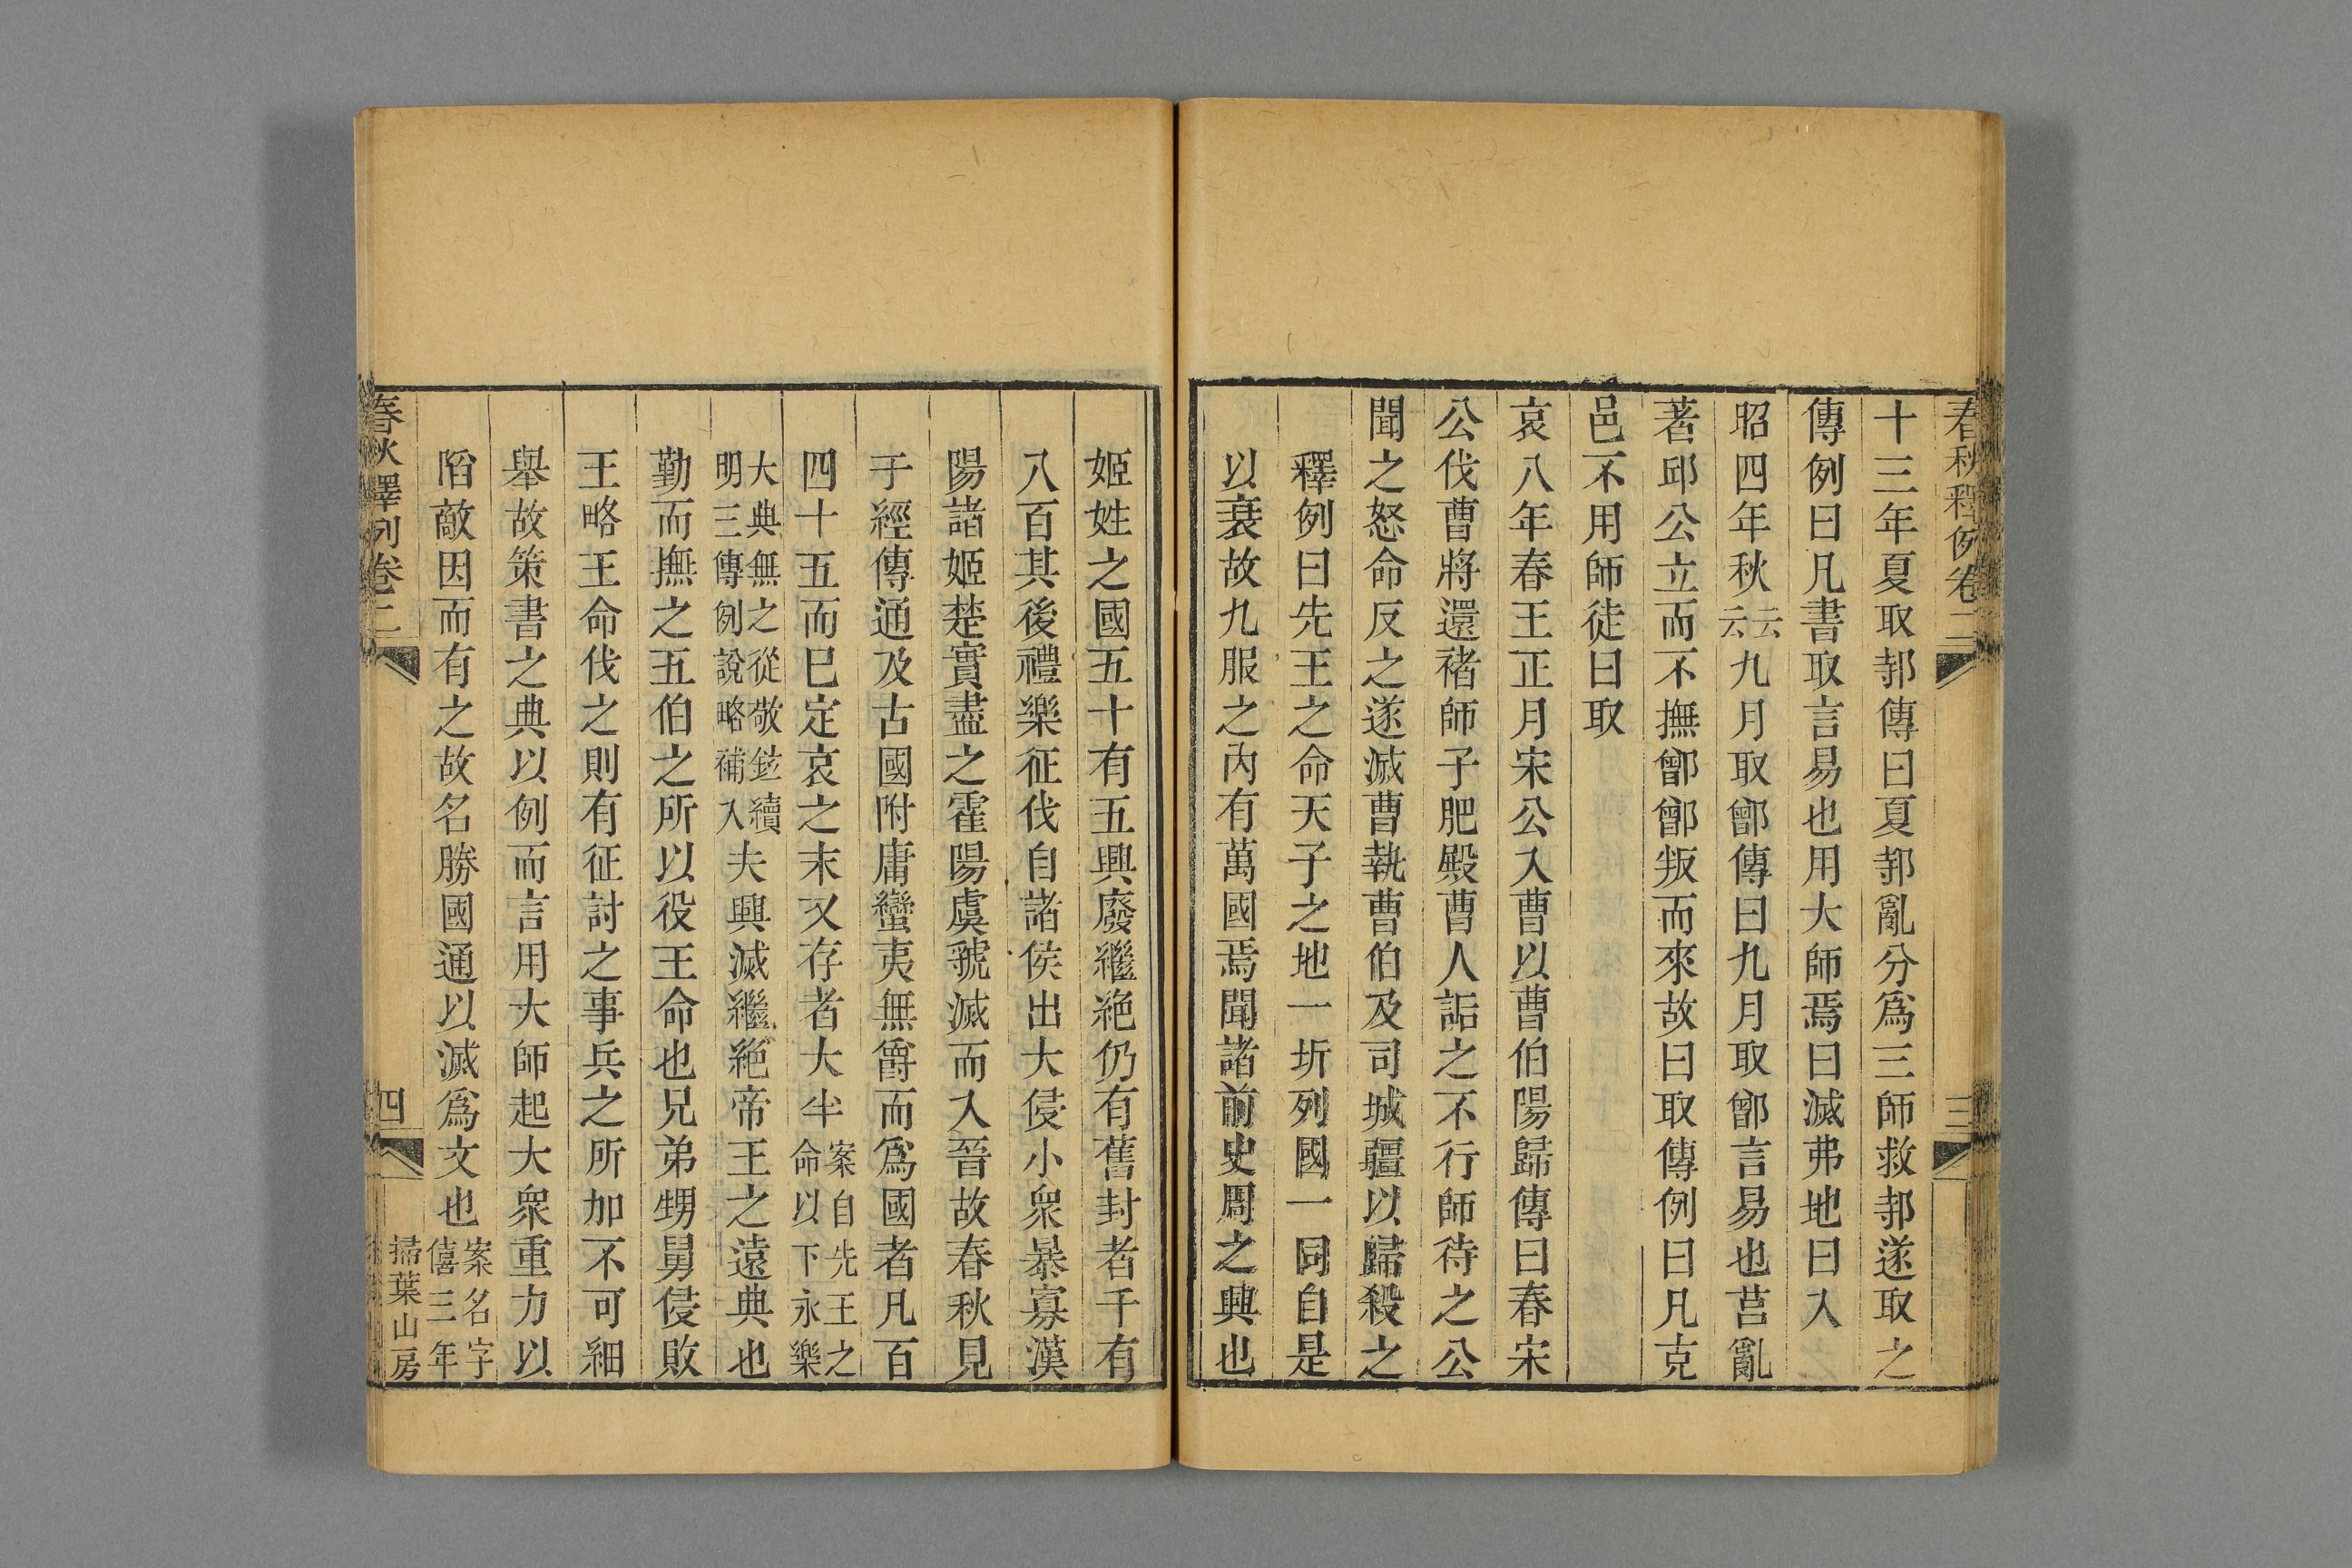 春秋釋例卷二
三
十三年夏取邿傳曰夏邿亂分爲三師救邿遂取之
傳例曰凡書取言易也用大師焉曰滅弗地曰入
昭四年秋云云九月取鄫傳曰九月取鄫言易也莒亂
著邱公立而不撫鄫鄫叛而來故曰取傳例曰凡克
邑不用師徒曰取
哀八年春王正月宋公入曹以曹伯陽歸傳曰春宋
公伐曹將還褚師子肥殿曹人詬之不行師待之公
聞之怒命反之遂滅曹執曹伯及司城疆以歸殺之
釋例曰先王之命天子之地一圻列國一同自是
以衰故九服之內有萬國焉聞諸前史周之興也
姬姓之國五十有五興廢繼絶仍有舊封者千有
八百其後禮樂征伐自諸侯出大侵小衆暴寡漢
陽諸姬楚實盡之霍陽虞虢滅而入晉故春秋見
于經傳通及古國附庸蠻夷無爵而爲國者凡百
四十五而已定哀之末又存者大半案自先王之命以下永樂
大典無之從敬鉉續明三傳例說略補入夫興滅繼絶帝王之遠典也
勤而撫之五伯之所以役王命也兄弟甥舅侵敗
王略王命伐之則有征討之事兵之所加不可細
舉故策書之典以例而言用大師起大衆重力以
䧟敵因而有之故名勝國通以滅爲文也案名字僖三年
春秋釋例卷二
四
掃葉山房